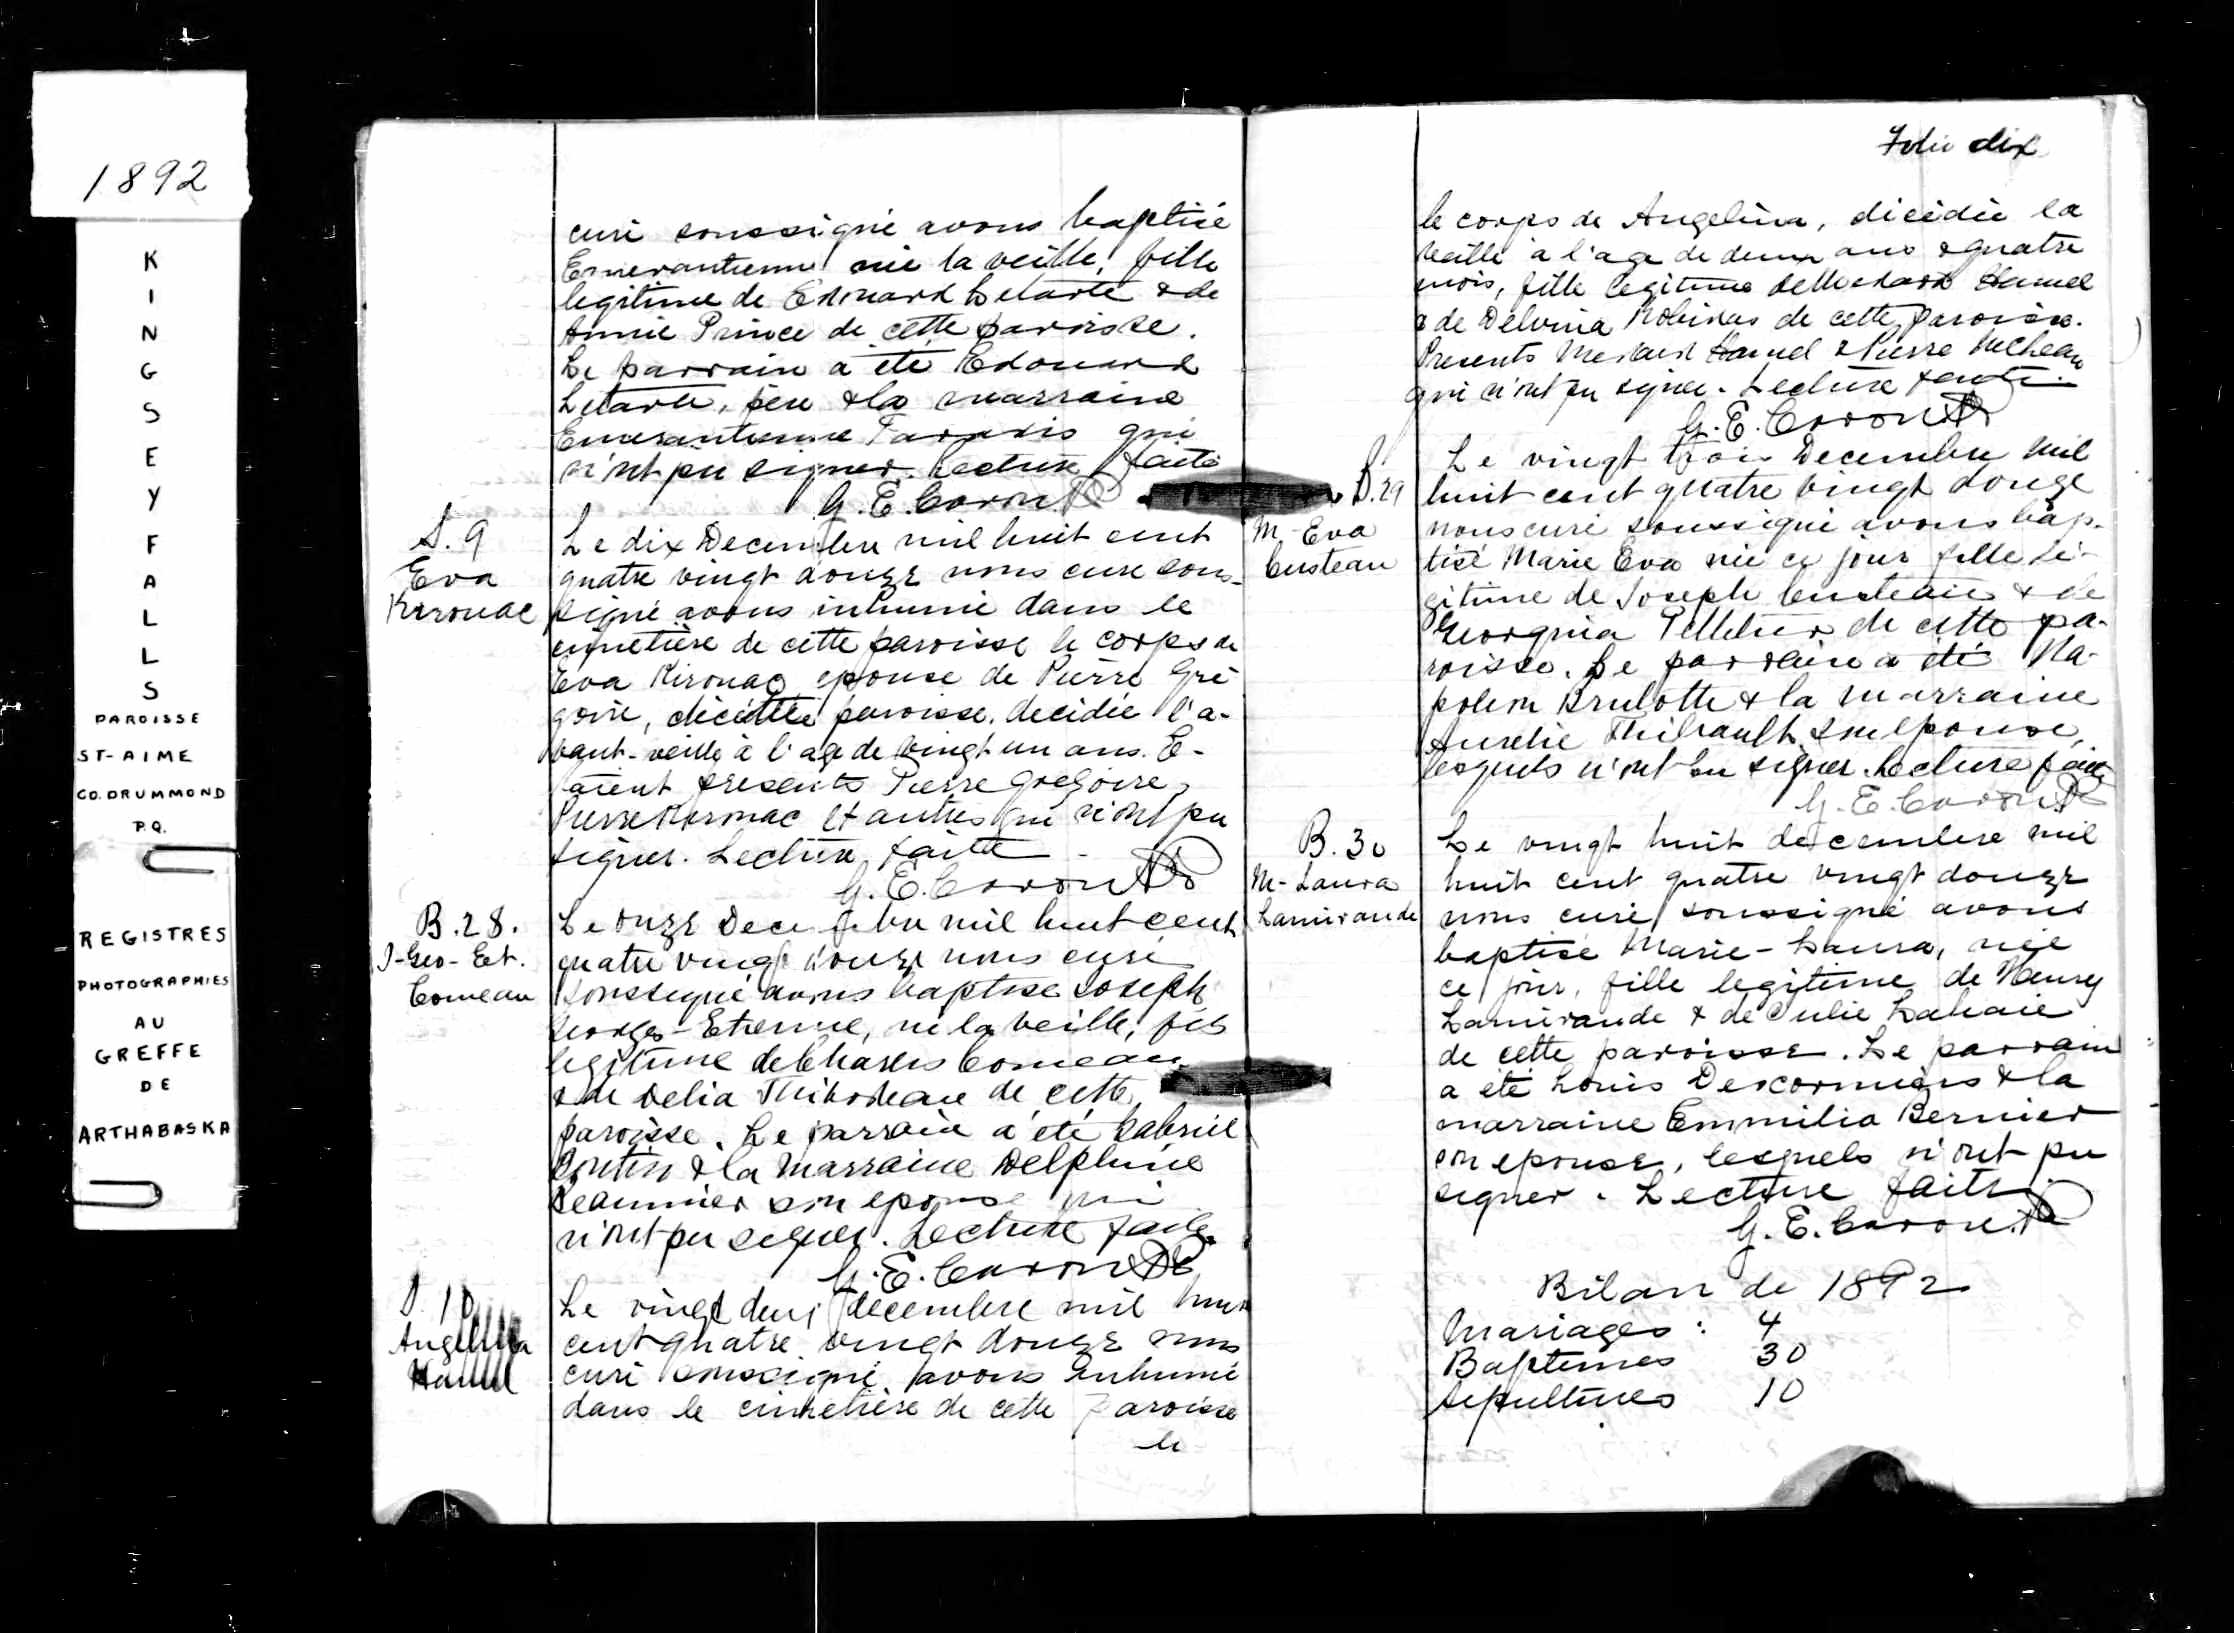 1892
K
I
N
G
S
E
Y
F
A
L
L
S
PAROISSE
ST-AIME
CO. DRUMMOND
P.Q.
REGISTRES
PHOTOGRAPHIES
AU
GREFFE
DE
ARTHABASKA
curé soussigné avons baptisé
née la veille, fille
legitime de Edouard Letarte & de
Annie Prince de cette paroisse.
Le parrain a été Edouard
Letarte, père & la marraine
Paradis qui
n'ont pu signer. Lecture faite
G. E. Caron Ptr
S. 9
Eva
Kirouac
Le dix Decembre mil huit cent
quatre vingt douze nous curé sous-
signé avons inhumé dans le
cimetière de cette paroisse le corps de
Eva Kirouac epouse de Pierre Gré
goire, de cette paroisse, decédée l'a-
vant-veille à l'age de vingt un ans. E-
taient presents Pierre Grégoire,
Pierre Kirouac et autres qui n'ont pu
signer. Lecture faite
G. E. Caron Ptr
B. 28.
J-Geo-Et.
Comeau
Le onze Decembre mil huit cent
quatre vingt douze nous curé
soussigné avons baptisé Joseph
Georges-Etienne, né la veille, fils
legitime de Charles Comeau
& de Delia Thibodeau de cette
paroisse. Le parrain a été Gabriel
& la marraine Delphine
son epouse qui
n'ont pu signer. Lecture faite.
G. E. Caron Ptr
S. 10
Angelina
Hamel
Le vingt deux decembre mil huit
cent quatre vingt douze nous
curé soussigné avons inhumé
dans le cimetière de cette paroisse
le
Folio dix
le corps de Angelina, decédée la
veille à l'age de deux ans & quatre
mois, fille legitime de Medard Hamel
& de Delvina Robidas de cette paroisse.
Presents Medard Hamel & Pierre
qui n'ont pu signer. Lecture faite.
G. E. Caron Ptr
B. 29
M-Eva
Custeau
Le vingt trois Decembre mil
huit cent quatre vingt douze
nous curé soussigné avons bap-
tisé Marie Eva née ce jour fille lé-
gitime de Joseph Custeau & de
Georgina Pelletier de cette pa-
roisse. Le parrain a été Na-
poleon Brulotte & la marraine
Aurelie Thibault son epouse,
lesquels n'ont pu signer. Lecture faite
G. E. Caron Ptr
B. 30
M-Laura
Lamirande
Le vingt huit decembre mil
huit cent quatre vingt douze
nous curé soussigné avons
baptisé Marie-Laura, née
ce jour, fille legitime de Henry
Lamirande & de Julie Lahaie
de cette paroisse. Le parrain
a été Louis Descormiers & la
marraine Emmilia Bernier
son epouse, lesquels n'ont pu
signer. Lecture faite.
G. E. Caron Ptr
Bilan de 1892
Mariages : 4
Baptemes 30
Sepultures 10